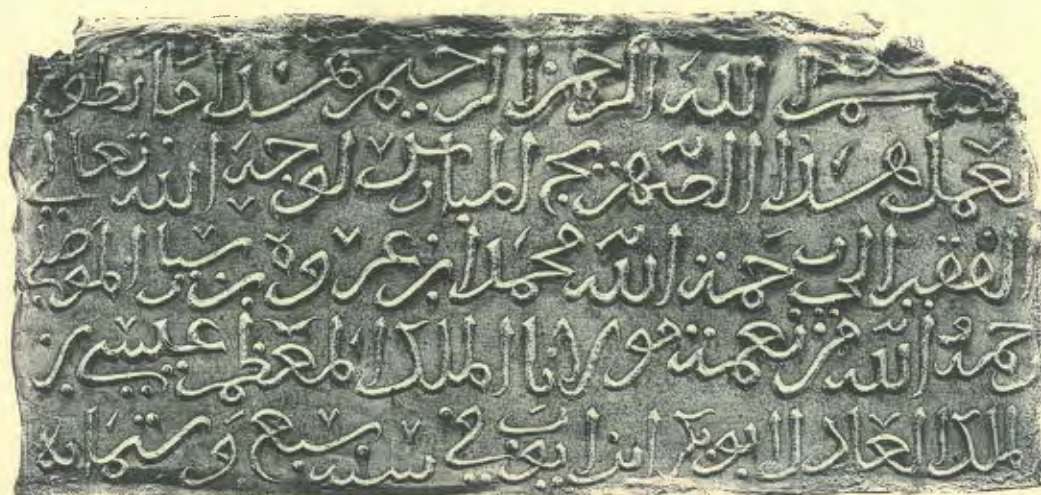 بسم الله الرحمن الرحيم هذا ما تطوع
بعمل هذا الصهريج المبارك لوجه الله تعالى
الفقير الى رحمة الله محمد ابن عروة بن سيار الموصلي
رحمه الله من نعمة مولانا الملك المعظم عيسى بن
الملك العادل ابو بكر ابن ايوب في سنة سبع وستمائة